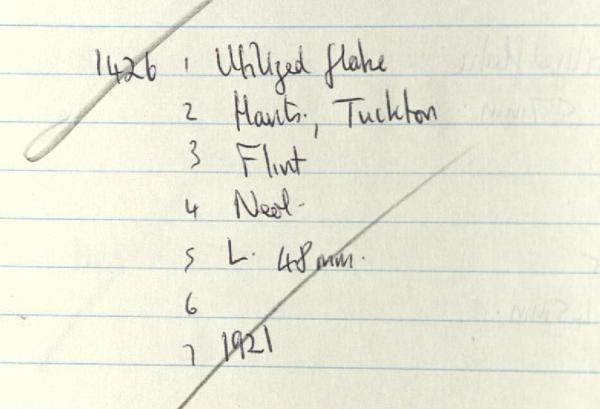 1426 1 Utilized flake
2 Hants., Tuckton
3 Flint
4 Neol.
5 L. 48mm.
6
7 1921